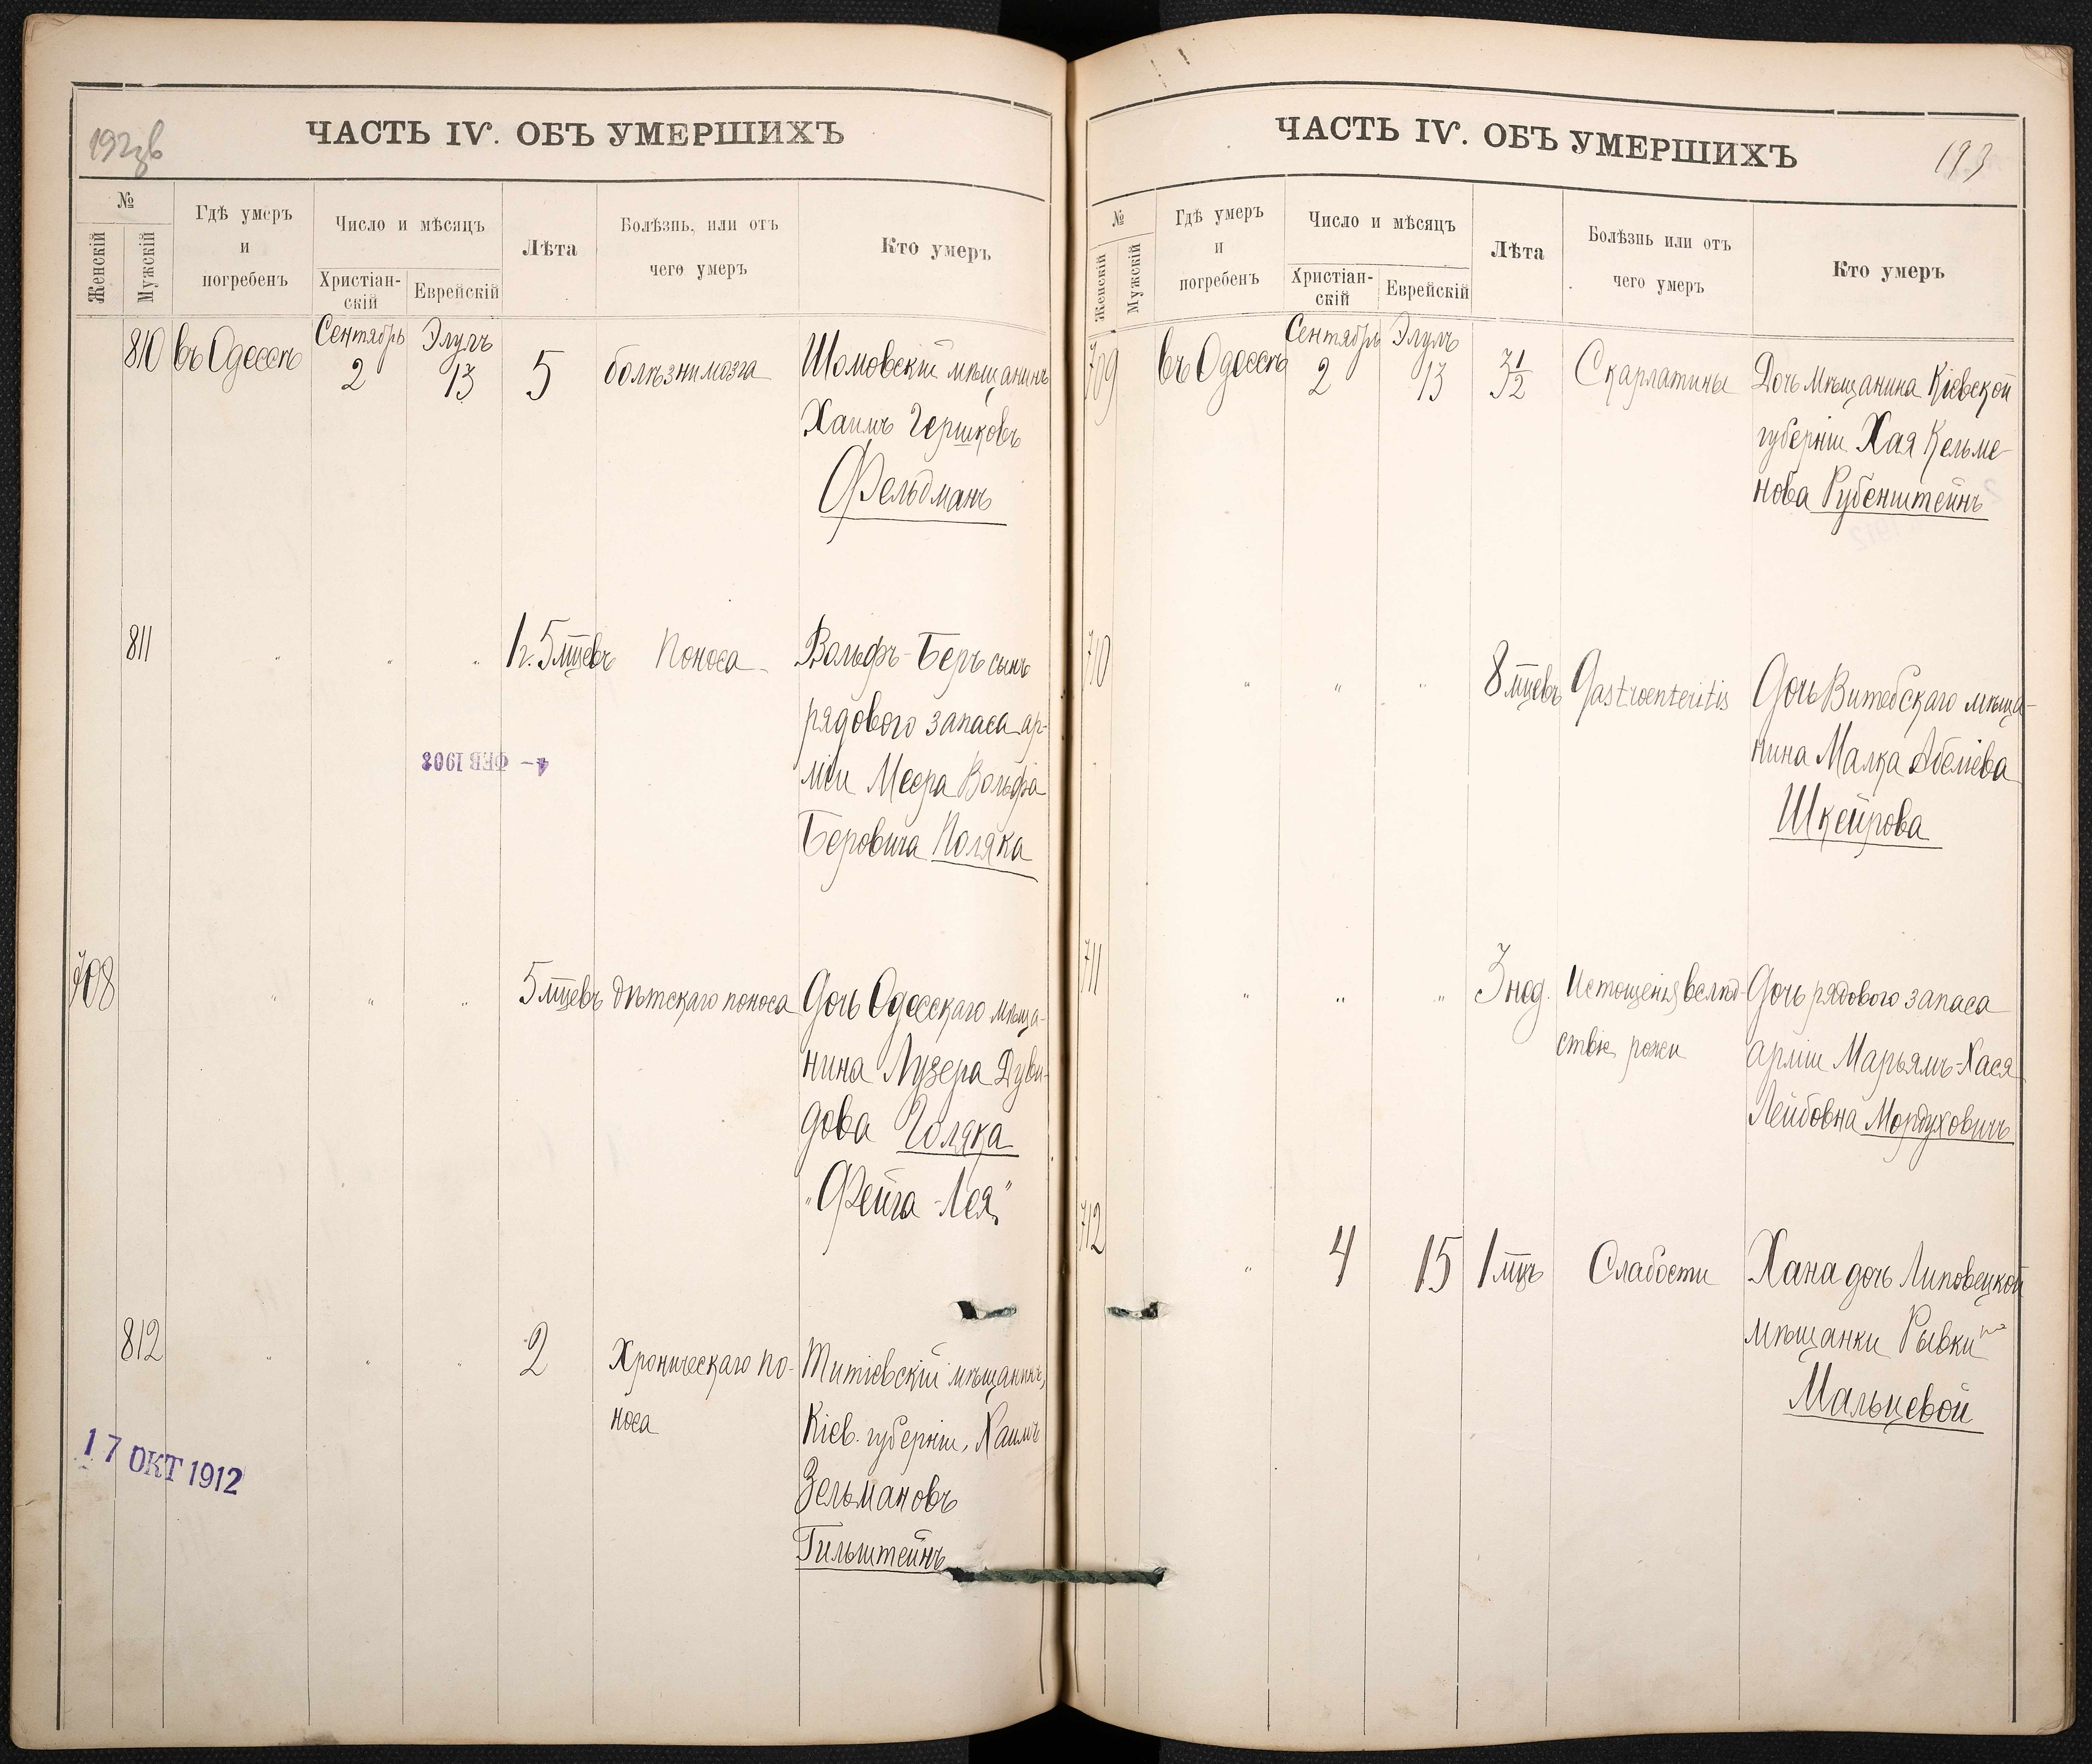 192 об
ЧАСТЬ IV. ОБЪ УМЕРШИХЪ
№
Женскій
Мужскій
Гдѣ умеръ
и
погребенъ
Число и мѣсяцъ
Христіан-
скій
Еврейскій
Лѣта
Болѣзнь, или отъ
чего умеръ
Кто умеръ
810 въ Одессѣ Сентябрь 2 Элулъ 13 5 болѣзни мозга Шомовскій мѣщанинъ
Хаимъ Гершковъ
Фельдманъ
811 " " " 1 г. 5 мцевъ Поноса Вольфъ-Беръ сынъ
рядового запаса ар-
міи Меера Вольфа
Беровича Поляка
4 - ФЕВ 1903
708 " " " 5 мцевъ дѣтскаго поноса Дочь Одесскаго мѣща-
нина Лузера Дуви-
дова Голяка
"Фейга-Лея"
812 " " " 2 Хроническаго по- Титіевскій мѣщанинъ,
носа Кіев. губерніи, Хаимъ
Зельмановъ
Гильштейнъ
17 ОКТ 1912
ЧАСТЬ IV. ОБЪ УМЕРШИХЪ
193
№
Женскій
Мужскій
Гдѣ умеръ
и
погребенъ
Число и мѣсяцъ
Христіан-
скій
Еврейскій
Лѣта
Болѣзнь или отъ
чего умеръ
Кто умеръ
709 въ Одессѣ Сентябрь 2 Элулъ 13 3 1/2 Скарлатины Дочь мѣщанина Кіевской
губерніи Хая Кельме-
нова Рубенштейнъ
710 " " " 8 мцевъ Gastroenteritis Дочь Витебскаго мѣща-
нина Малка Абелева
Шкейрова
711 " " " 3 нед. Истощенія вслѣд- Дочь рядового запаса
ствіе рожи арміи Марьямъ-Хася
Лейбовна Мордуховичъ
712 " 4 15 1 мцъ Слабости Хана дочь Липовецкой
мѣщанки Рывки
Мальцевой